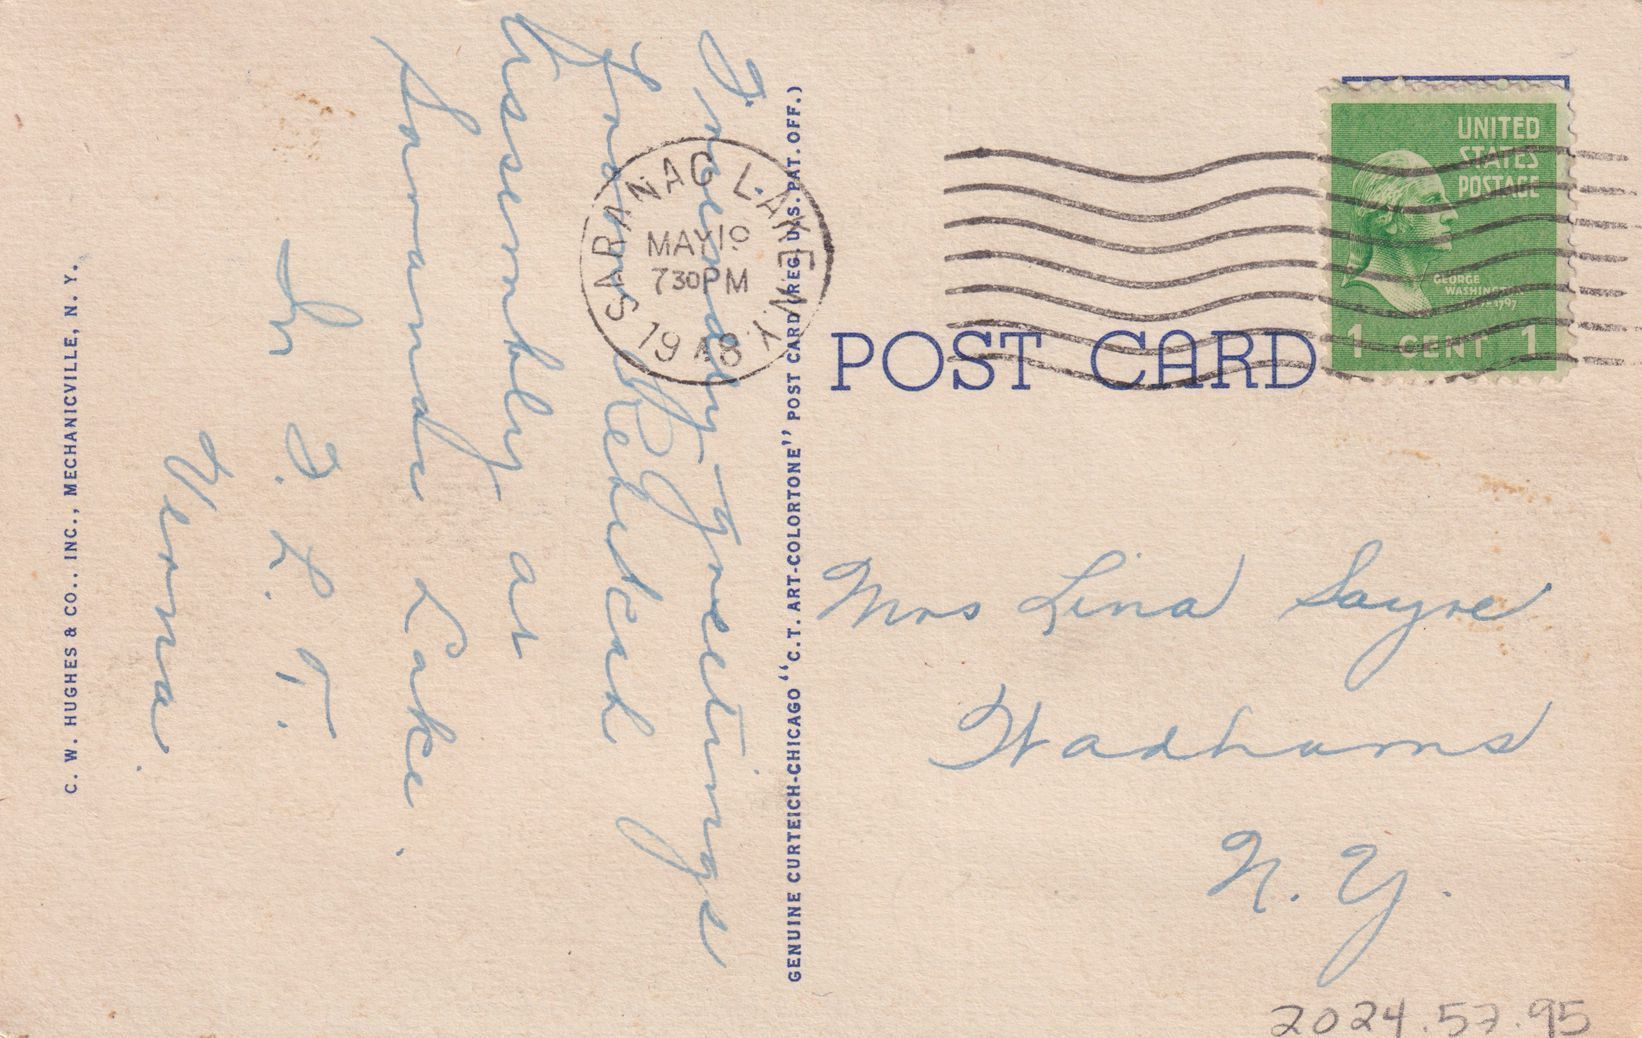 Friendly greetings
from Rebekah
Assembly at
Saranac Lake.
In F. L. T.
Verna.
C. W. HUGHES & CO., INC., MECHANICVILLE, N. Y.
GENUINE CURTEICH-CHICAGO "C.T. ART-COLORTONE" POST CARD (REG. U.S. PAT. OFF.)
SARANAC LAKE N.Y.
MAY 19
730PM
1948
UNITED
STATES
POSTAGE
GEORGE
WASHINGTON
1 CENT 1
POST CARD
Mrs Lina Sayre
Wadhams
N. Y.
2024.57.95